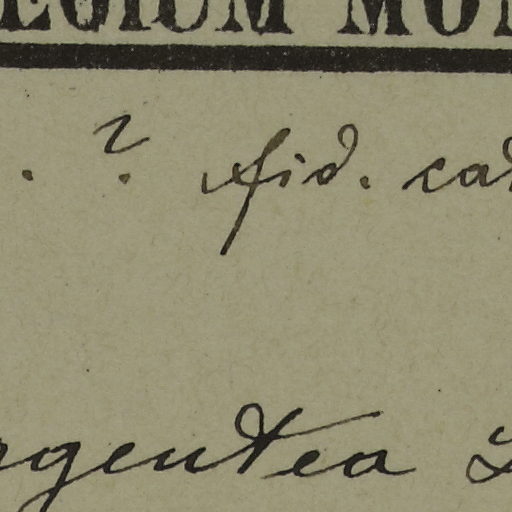 EGIUM MO
. ? fid. cat
rgentea L